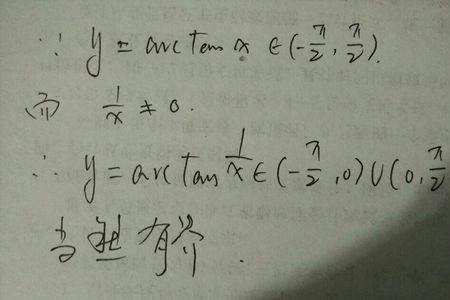 ∵ y = arctan x ∈ (-π/2, π/2).
而 1/x ≠ 0.
∴ y = arctan 1/x ∈ (-π/2, 0) ∪ (0, π/2
当然有界.